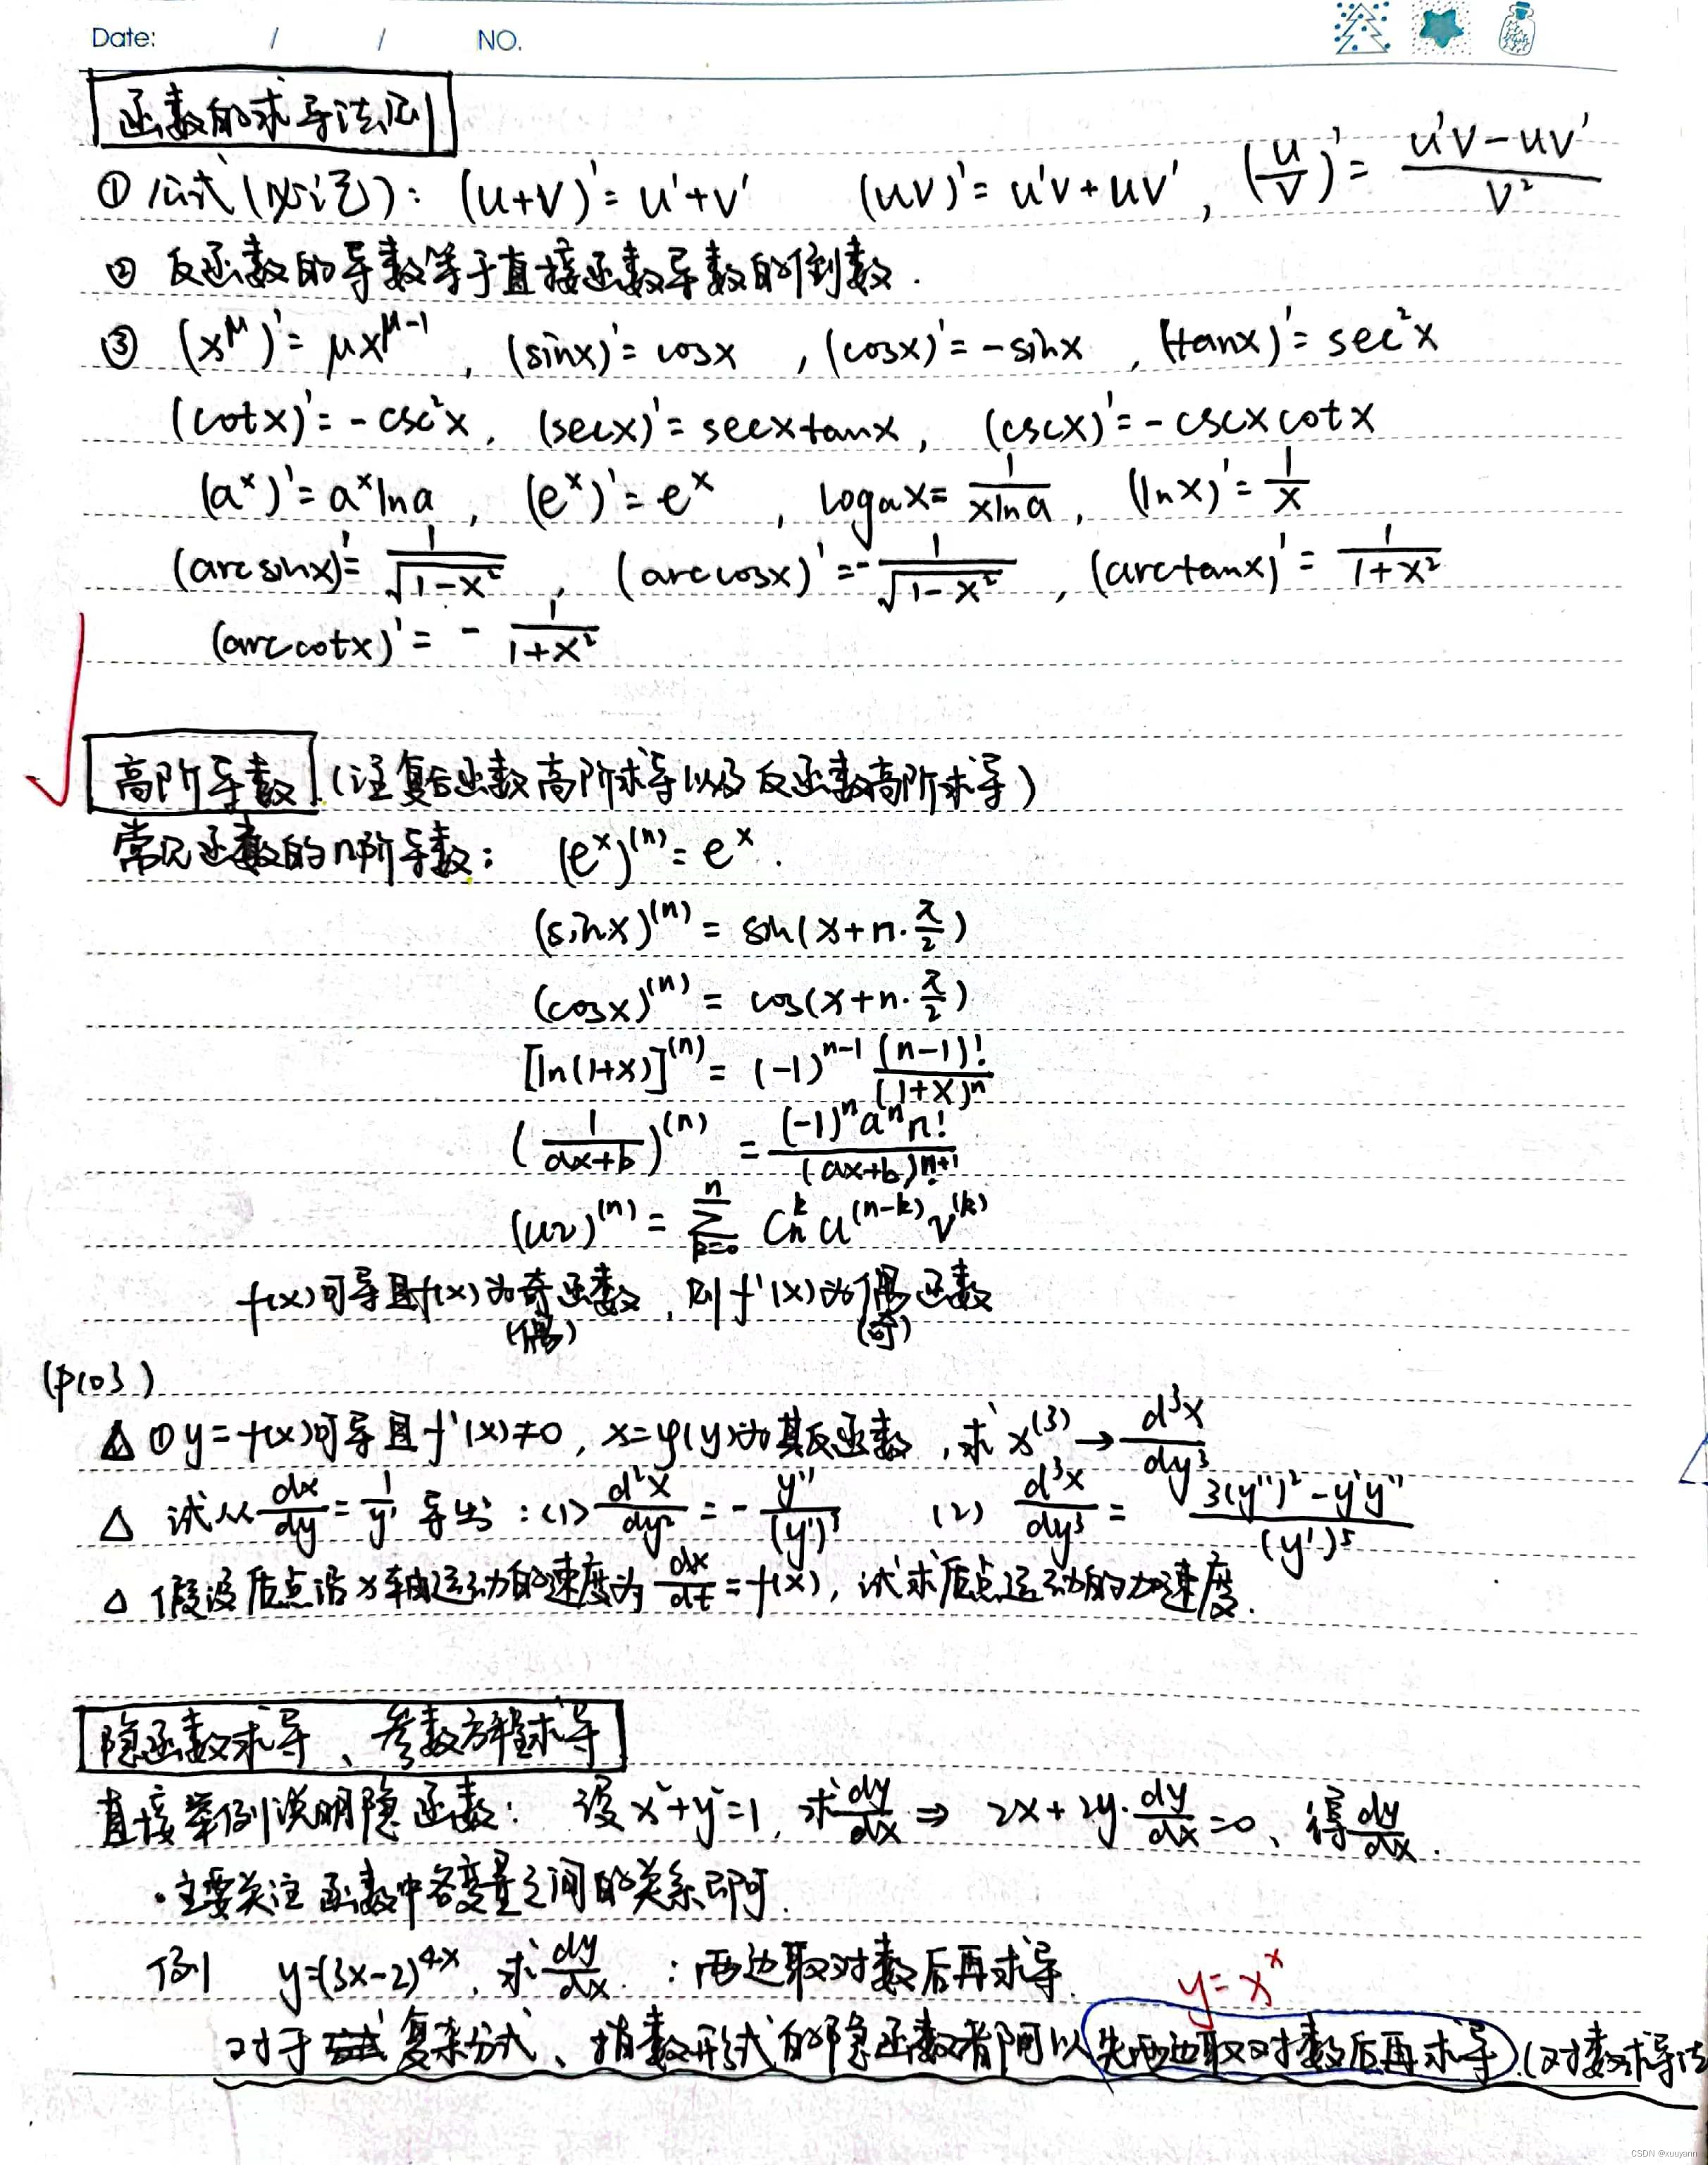 Date: / / NO.
函数的求导法则
① 公式(必记): (u+v)'=u'+v' (uv)'=u'v+uv', (u/v)'= (u'v-uv')/v²
② 反函数的导数等于直接函数导数的倒数.
③ (x^μ)'=μx^(μ-1), (sinx)'=cosx, (cosx)'=-sinx, (tanx)'=sec²x
(cotx)'=-csc²x, (secx)'=secxtanx, (cscx)'=-cscxcotx
(a^x)'=a^x lna, (e^x)'=e^x, logax=1/(xlna), (lnx)'=1/x
(arcsinx)'=1/√(1-x²), (arccosx)'=-1/√(1-x²), (arctanx)'=1/(1+x²)
(arccotx)'=-1/(1+x²)
高阶导数 (注复合函数高阶求导以及反函数高阶求导)
常见函数的n阶导数: (e^x)^(n)=e^x.
(sinx)^(n)=sin(x+n·π/2)
(cosx)^(n)=cos(x+n·π/2)
[ln(1+x)]^(n)=(-1)^(n-1) (n-1)!/(1+x)^n
(1/(ax+b))^(n)=(-1)^n a^n n!/(ax+b)^(n+1)
(uv)^(n)=∑_(k=0)^n C_n^k u^(n-k) v^(k)
f(x)可导且f(x)为奇函数,则f'(x)为偶函数
(偶) (奇)
(P103)
△ ①y=f(x)可导且f'(x)≠0, x=φ(y)为其反函数,求x^(3)→d³x/dy³
△ 试从dx/dy=1/y'导出:(1) d²x/dy²=-y''/(y')³ (2) d³x/dy³=(3(y'')²-y'y''')/(y')⁵
△ 假设质点沿x轴运动的速度为dx/dt=f(x),试求质点运动的加速度.
隐函数求导、参数方程求导
直接举例说明隐函数: 设x²+y²=1,求dy/dx ⇒ 2x+2y·dy/dx=0、得dy/dx.
·主要关注函数中各变量之间的关系即可.
例 y=(3x-2)^(4x),求dy/dx. :两边取对数后再求导.
y=x^x
对于复杂分式、指数形式的隐函数都可以先两边取对数后再求导.(对数求导法
CSDN @xuuyann